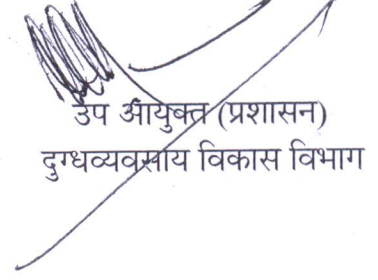 उप आयुक्त (प्रशासन)
दुग्धव्यवसाय विकास विभाग